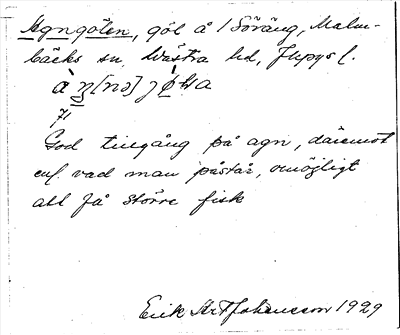 Agngölen, göl å 1 Söräng, Malm-
bäcks sn, Västra hd, Jkpgs l.
God tillgång på agn, däremot
enl. vad man påstår, omöjligt
att få större fisk
Erik Art Johansson 1929